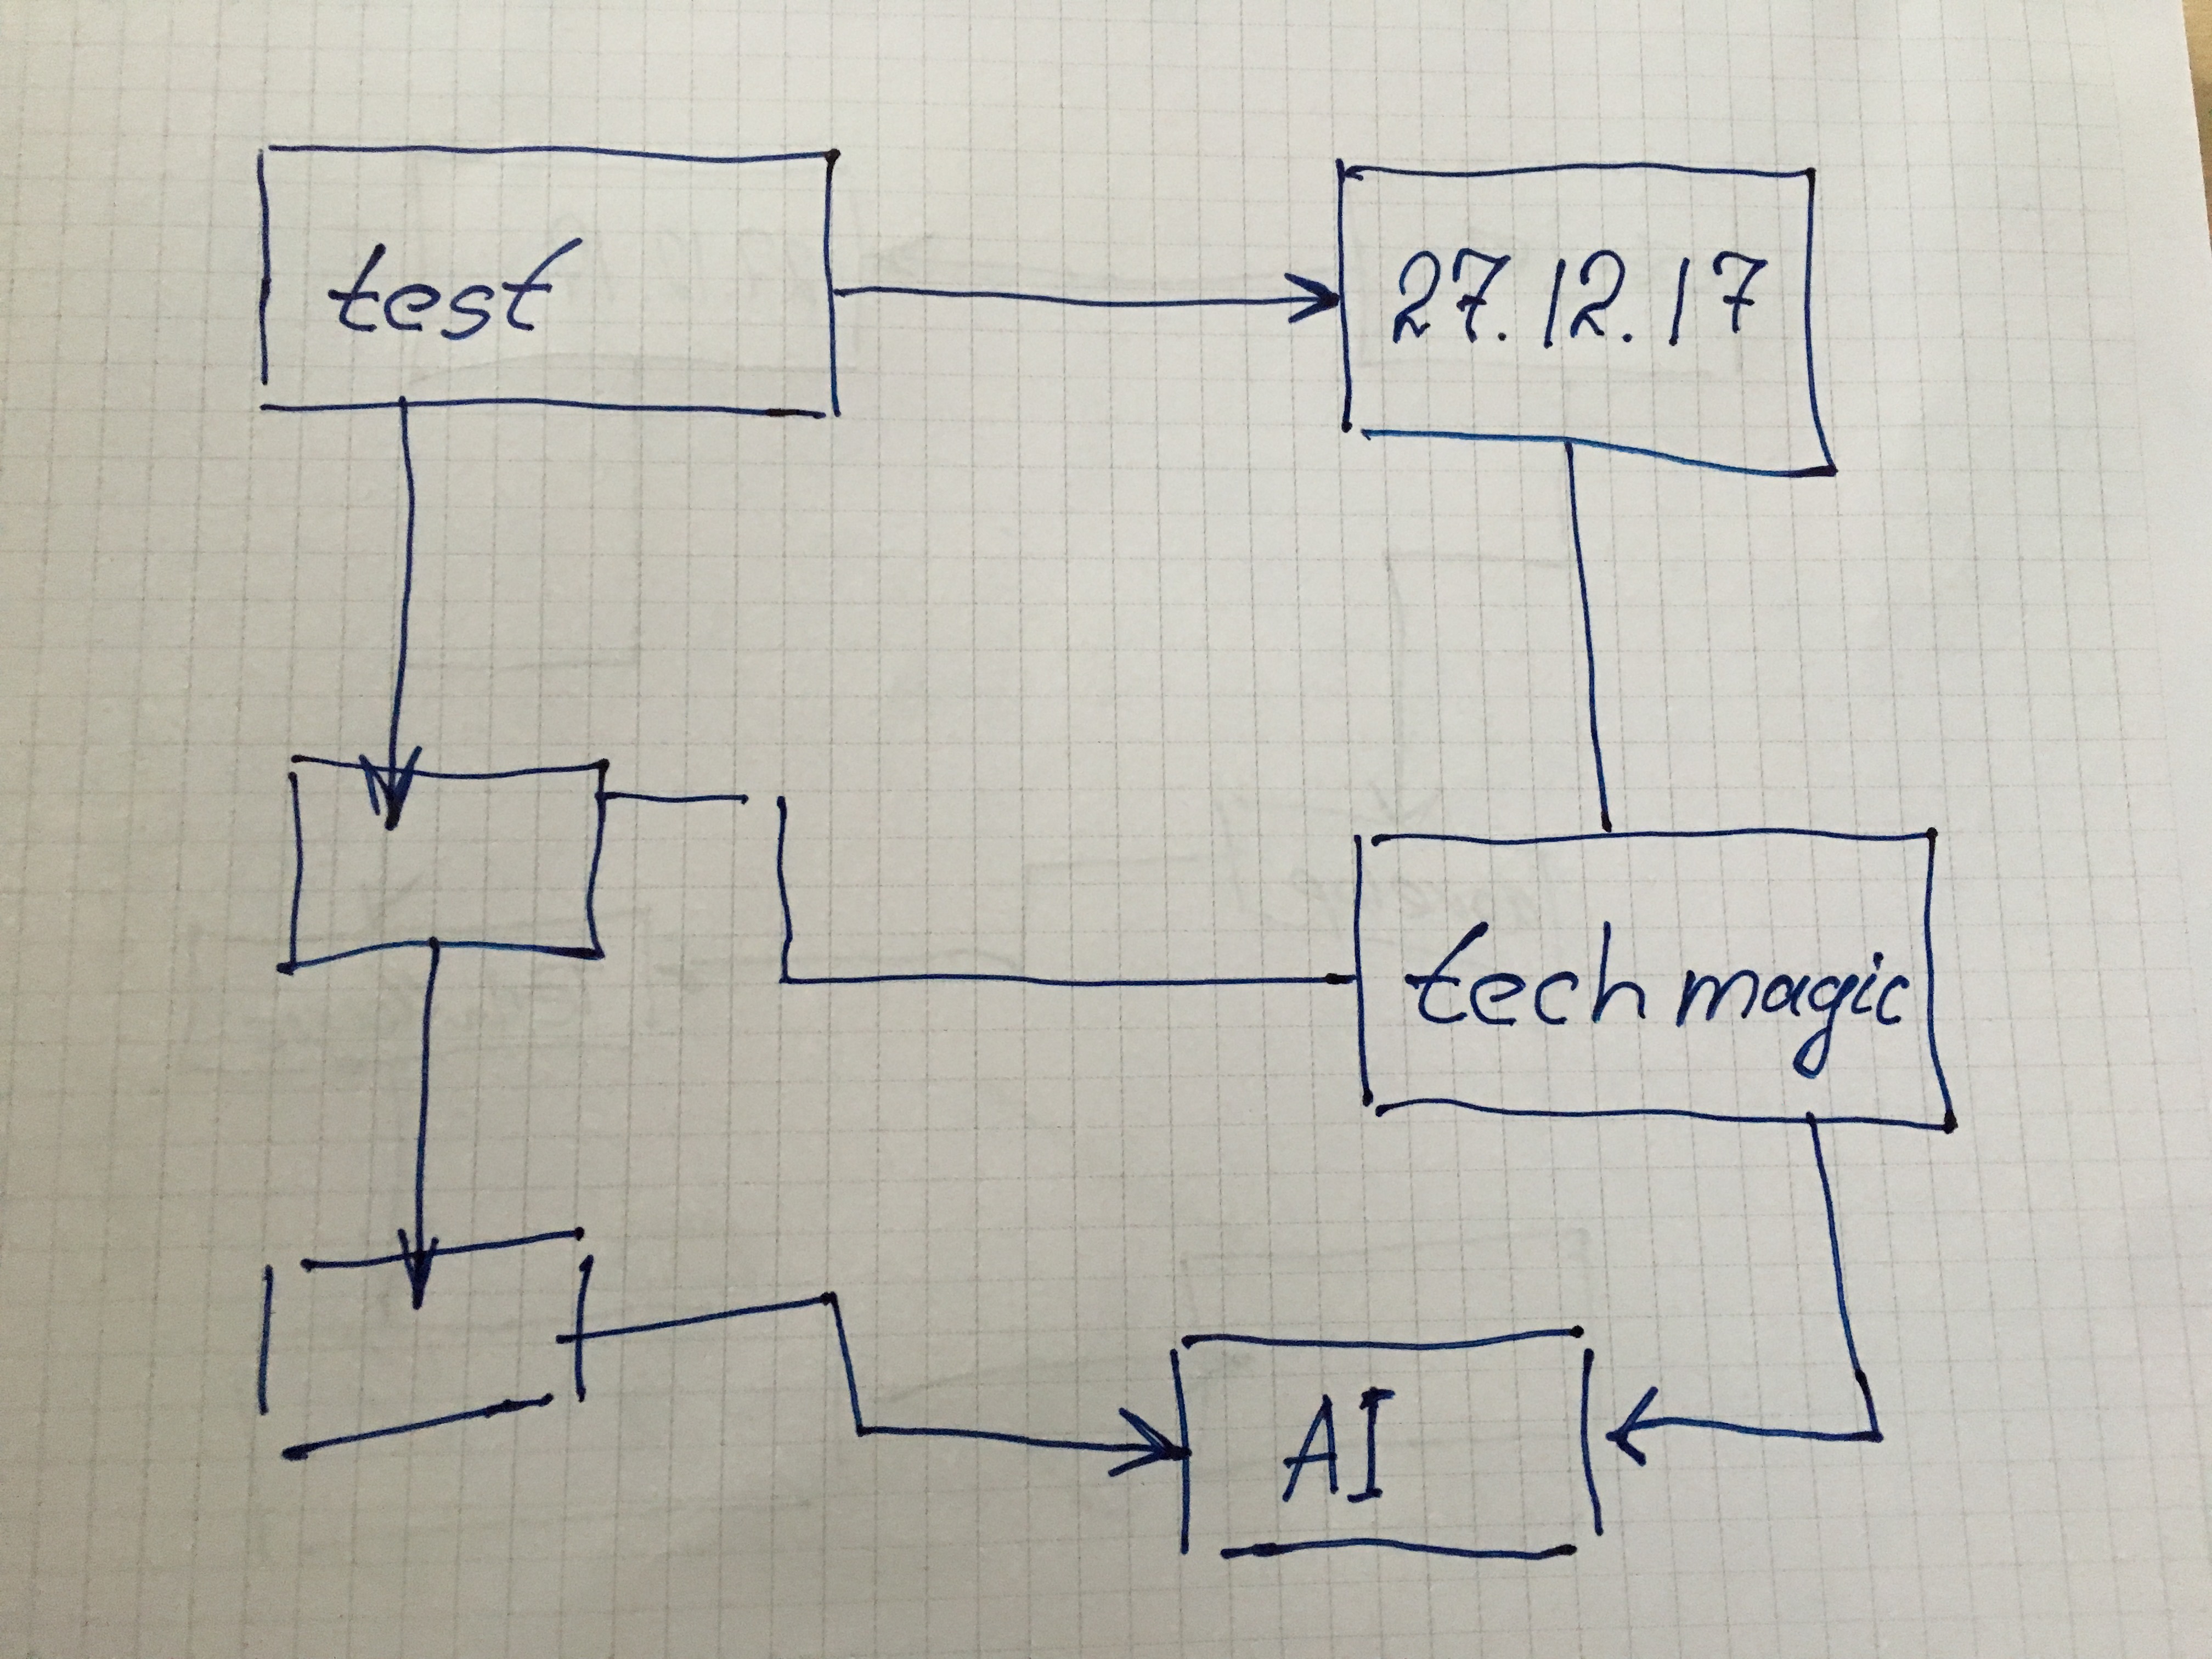 test
27.12.17
tech magic
AI